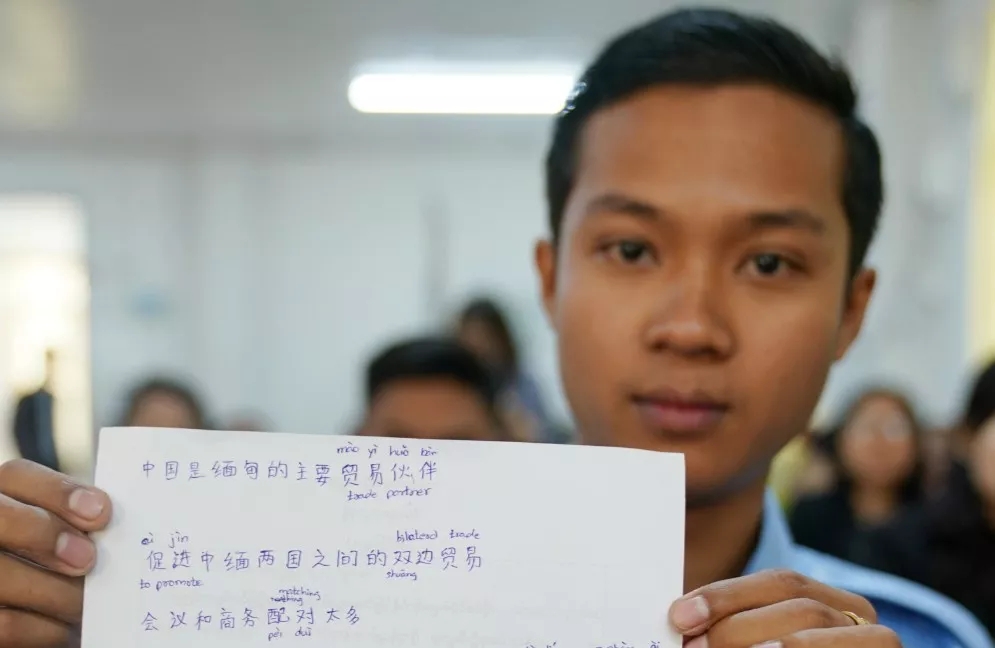 mào yì huǒ bàn
中国是缅甸的主要贸易伙伴
trade partner
jìn bilateral trade
促进中缅两国之间的双边贸易
to promote shuāng
matching
会议和商务配对太多
pèi duì